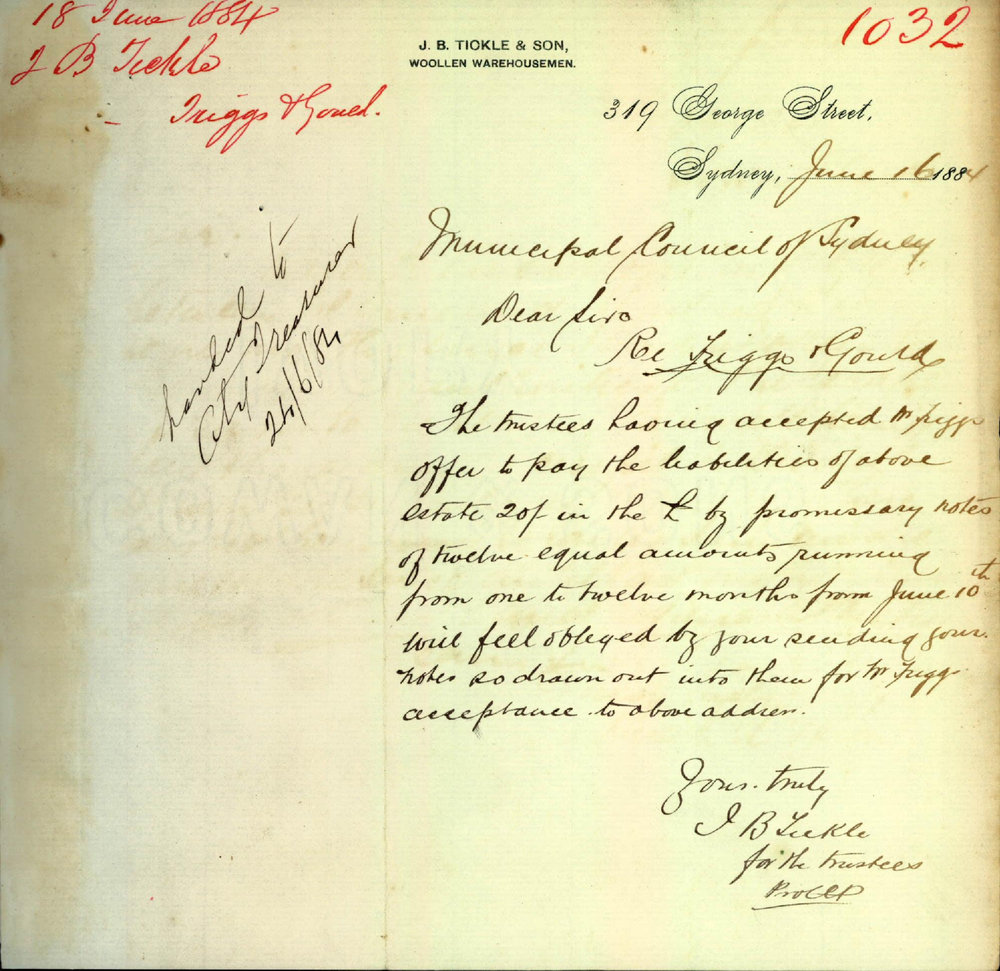 18 June 1884
J B Tickle
Triggs & Gould.
1032
J. B. TICKLE & SON,
WOOLLEN WAREHOUSEMEN.
319 George Street,
Sydney, June 16 1884
handed to
City Treasurer
24/6/84
Municipal Council of Sydney,
Dear Sirs
Re Triggs & Gould
The trustees having accepted Mr Triggs
offer to pay the liabilities of above
estate 20/ in the £ by promissary notes
of twelve equal amounts running
from one to twelve months from June 10th
will feel obleged by your sending your
notes so drawn out into them for Mr Triggs
acceptance to above address.
Yours truly
J B Tickle
for the trustees